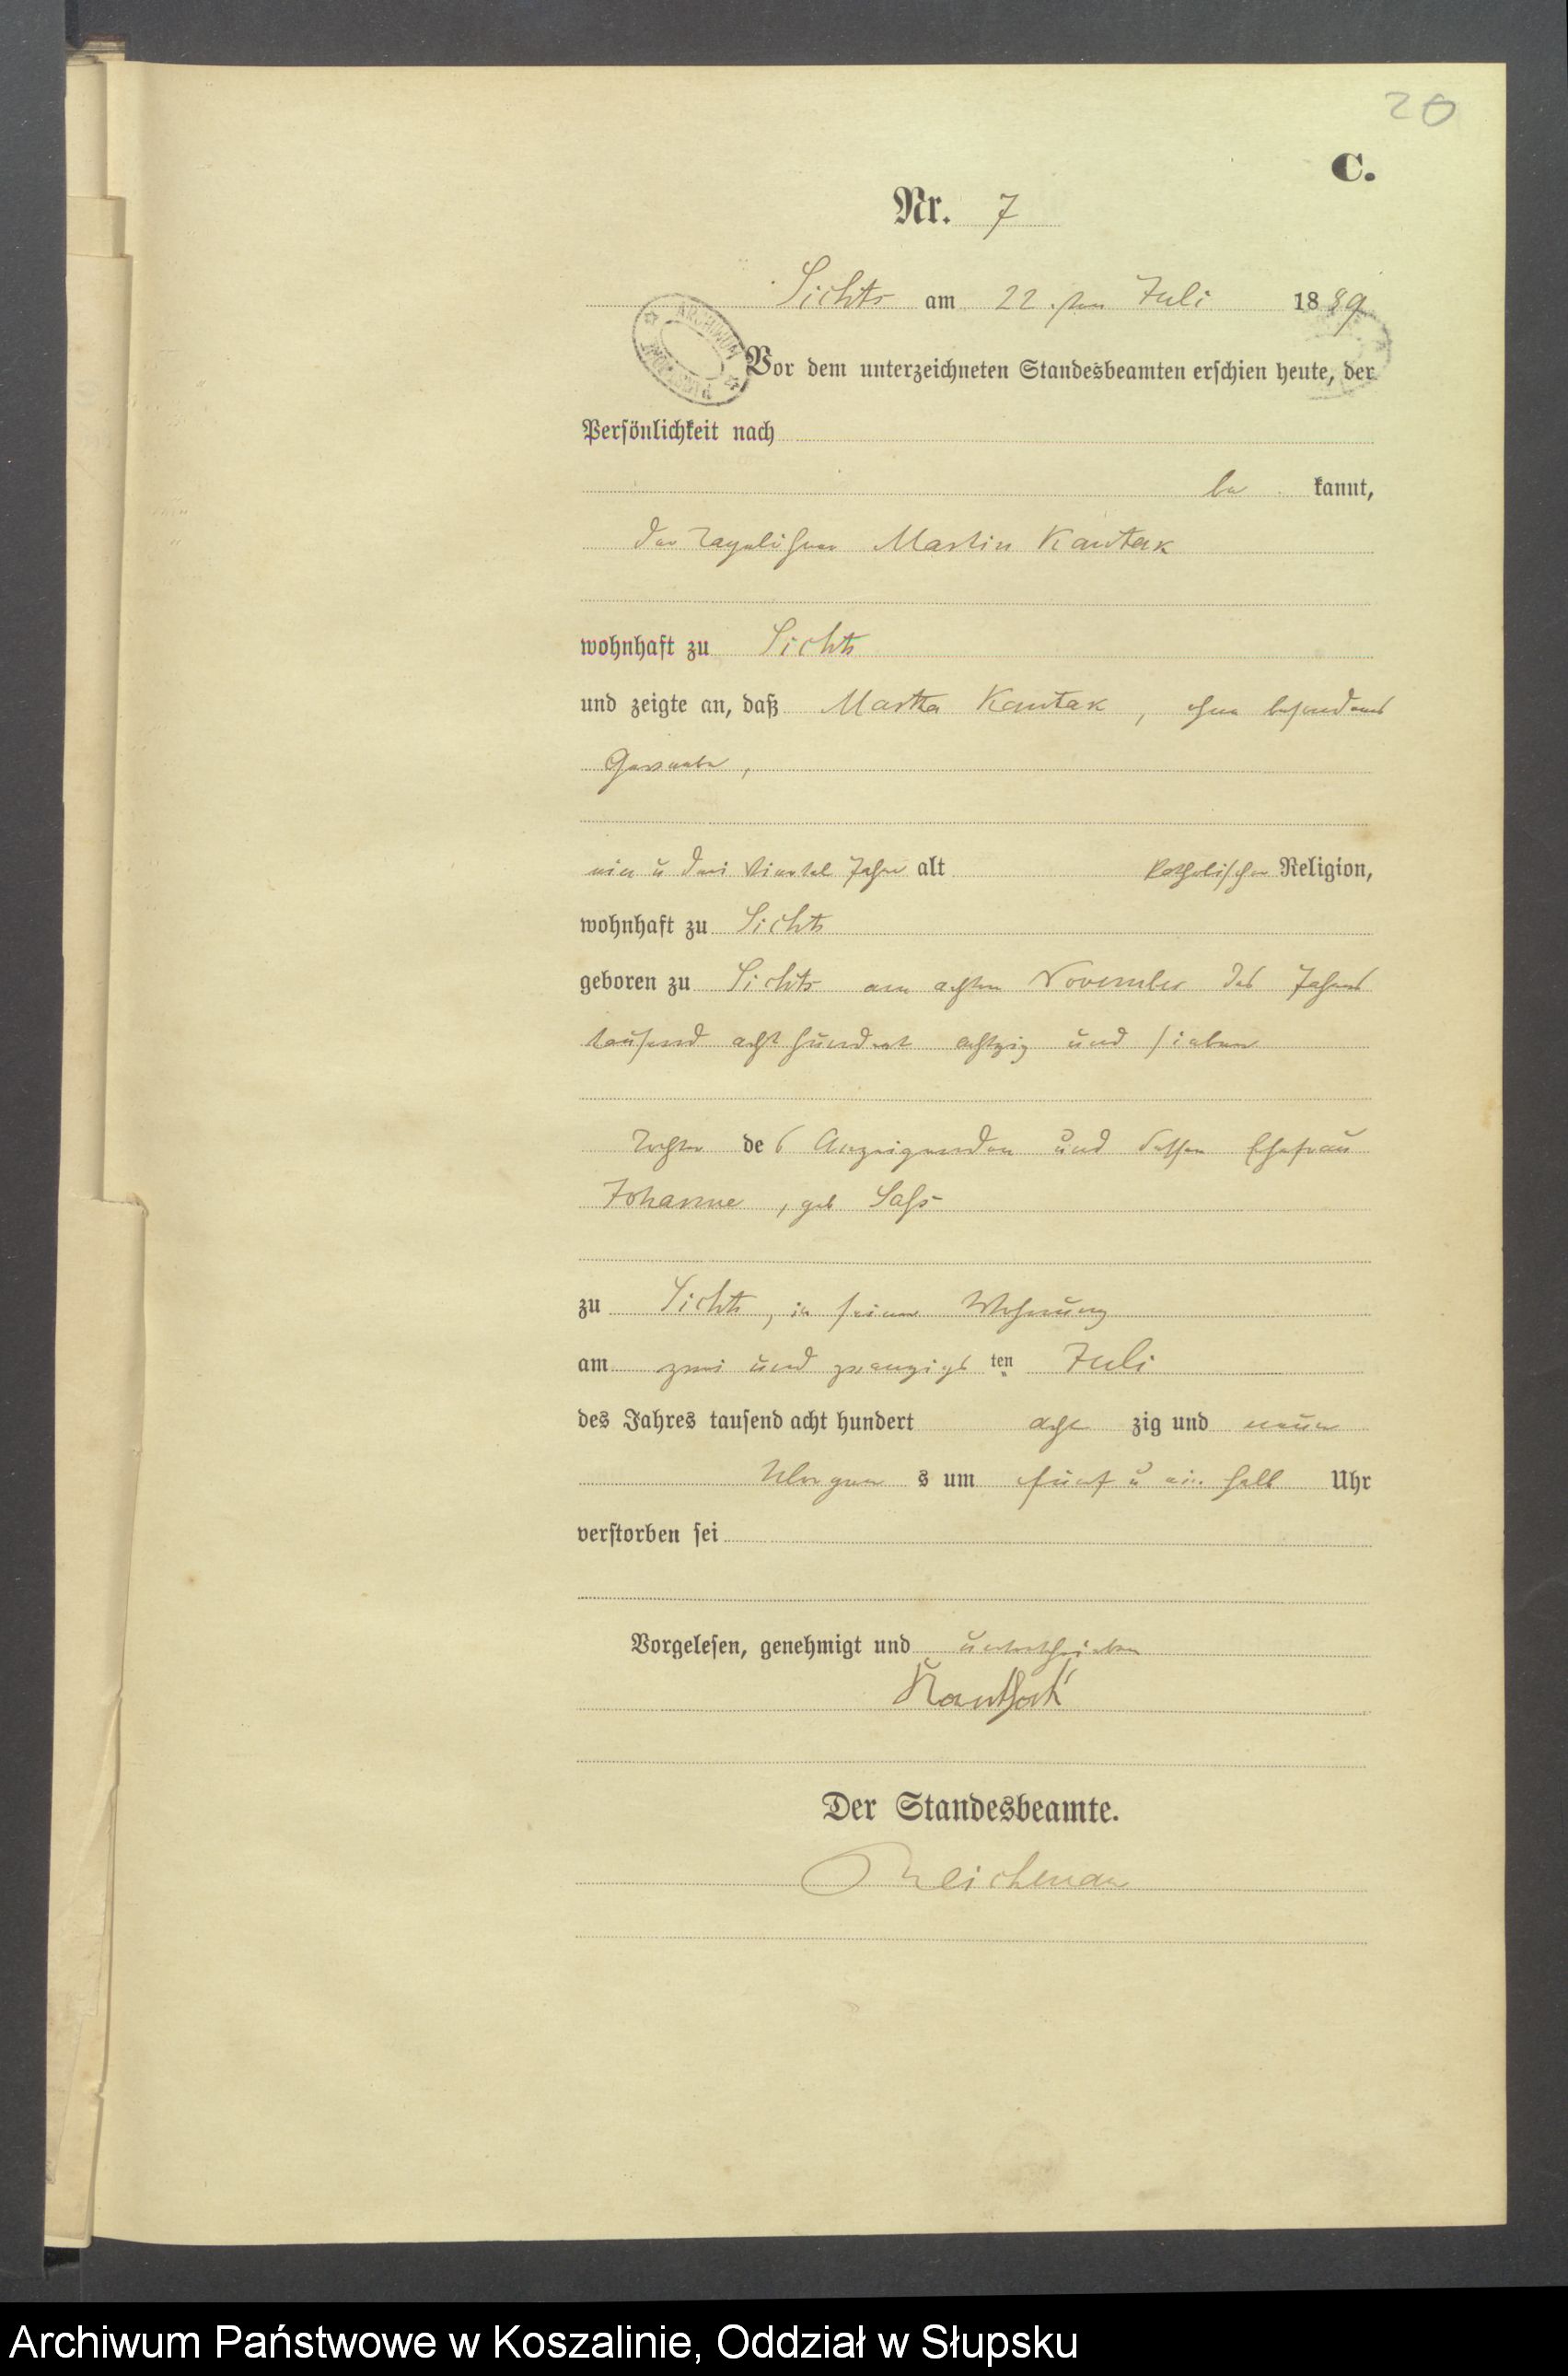 20
C.
Nr. 7
Sichts am 22. ten Juli 1889
ARCHIWUM
Vor dem unterzeichneten Standesbeamten erschien heute, der
Persönlichkeit nach
be kannt,
der Tagelöhner Martin Kautak
wohnhaft zu Sichts
und zeigte an, daß Martha Kautak, ohne besonderes
Gewerbe,
ein u drei Viertel Jahre alt katholischer Religion,
wohnhaft zu Sichts
geboren zu Sichts am achten November des Jahres
tausend acht hundert achtzig und sieben
Tochter des Anzeigenden und dessen Ehefrau
Johanne, geb Saß
zu Sichts, in seiner Wohnung
am zwei und zwanzigsten Juli
des Jahres tausend acht hundert acht zig und neun
Morgens um fünf u ein halb Uhr
verstorben sei
Vorgelesen, genehmigt und unterschrieben
Der Standesbeamte.
Archiwum Państwowe w Koszalinie, Oddział w Słupsku